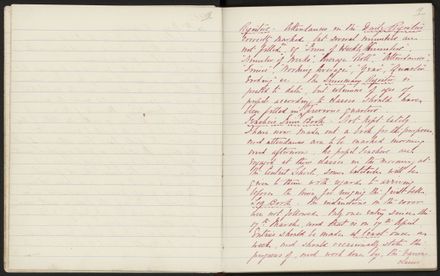 Registers. Attendances on the Daily Register
correctly marked but several minutes are
not filled, eg "Sum of Weekly Numbers",
Number of Weeks, Average Roll, Attendances,
"Times", Working Average, Year, Quarter
ending &c. The Summary Register is
posted to date, but columns of ages of
pupils according to classes should have
been filled in previous quarter
Teachers Time Book - Not kept lately
I have now made out a book for the purpose
and attendances are to be marked morning
and afternoon. As pupil teachers are
engaged at their classes in the morning at
the Central School some latitude will be
given to them with regard to arriving
before the time for
Log Book. The instructions in the cover
are not followed. Only one entry since the
17th March, and that is on 17th April
Entries should be made at least once a
week, and should occasionally state the
progress of, and work done by, the various
classes